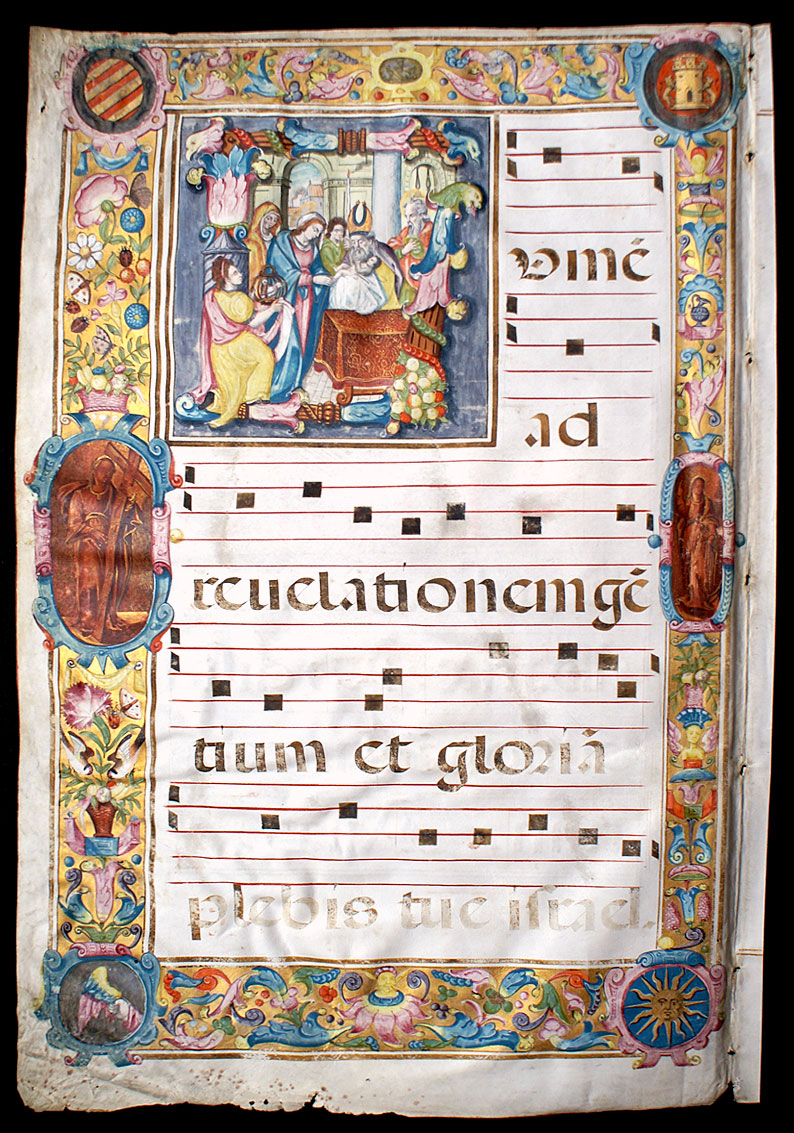 Lvmē
ad
reuelationem gē
tium et gloriā
plebis tue iſrael.